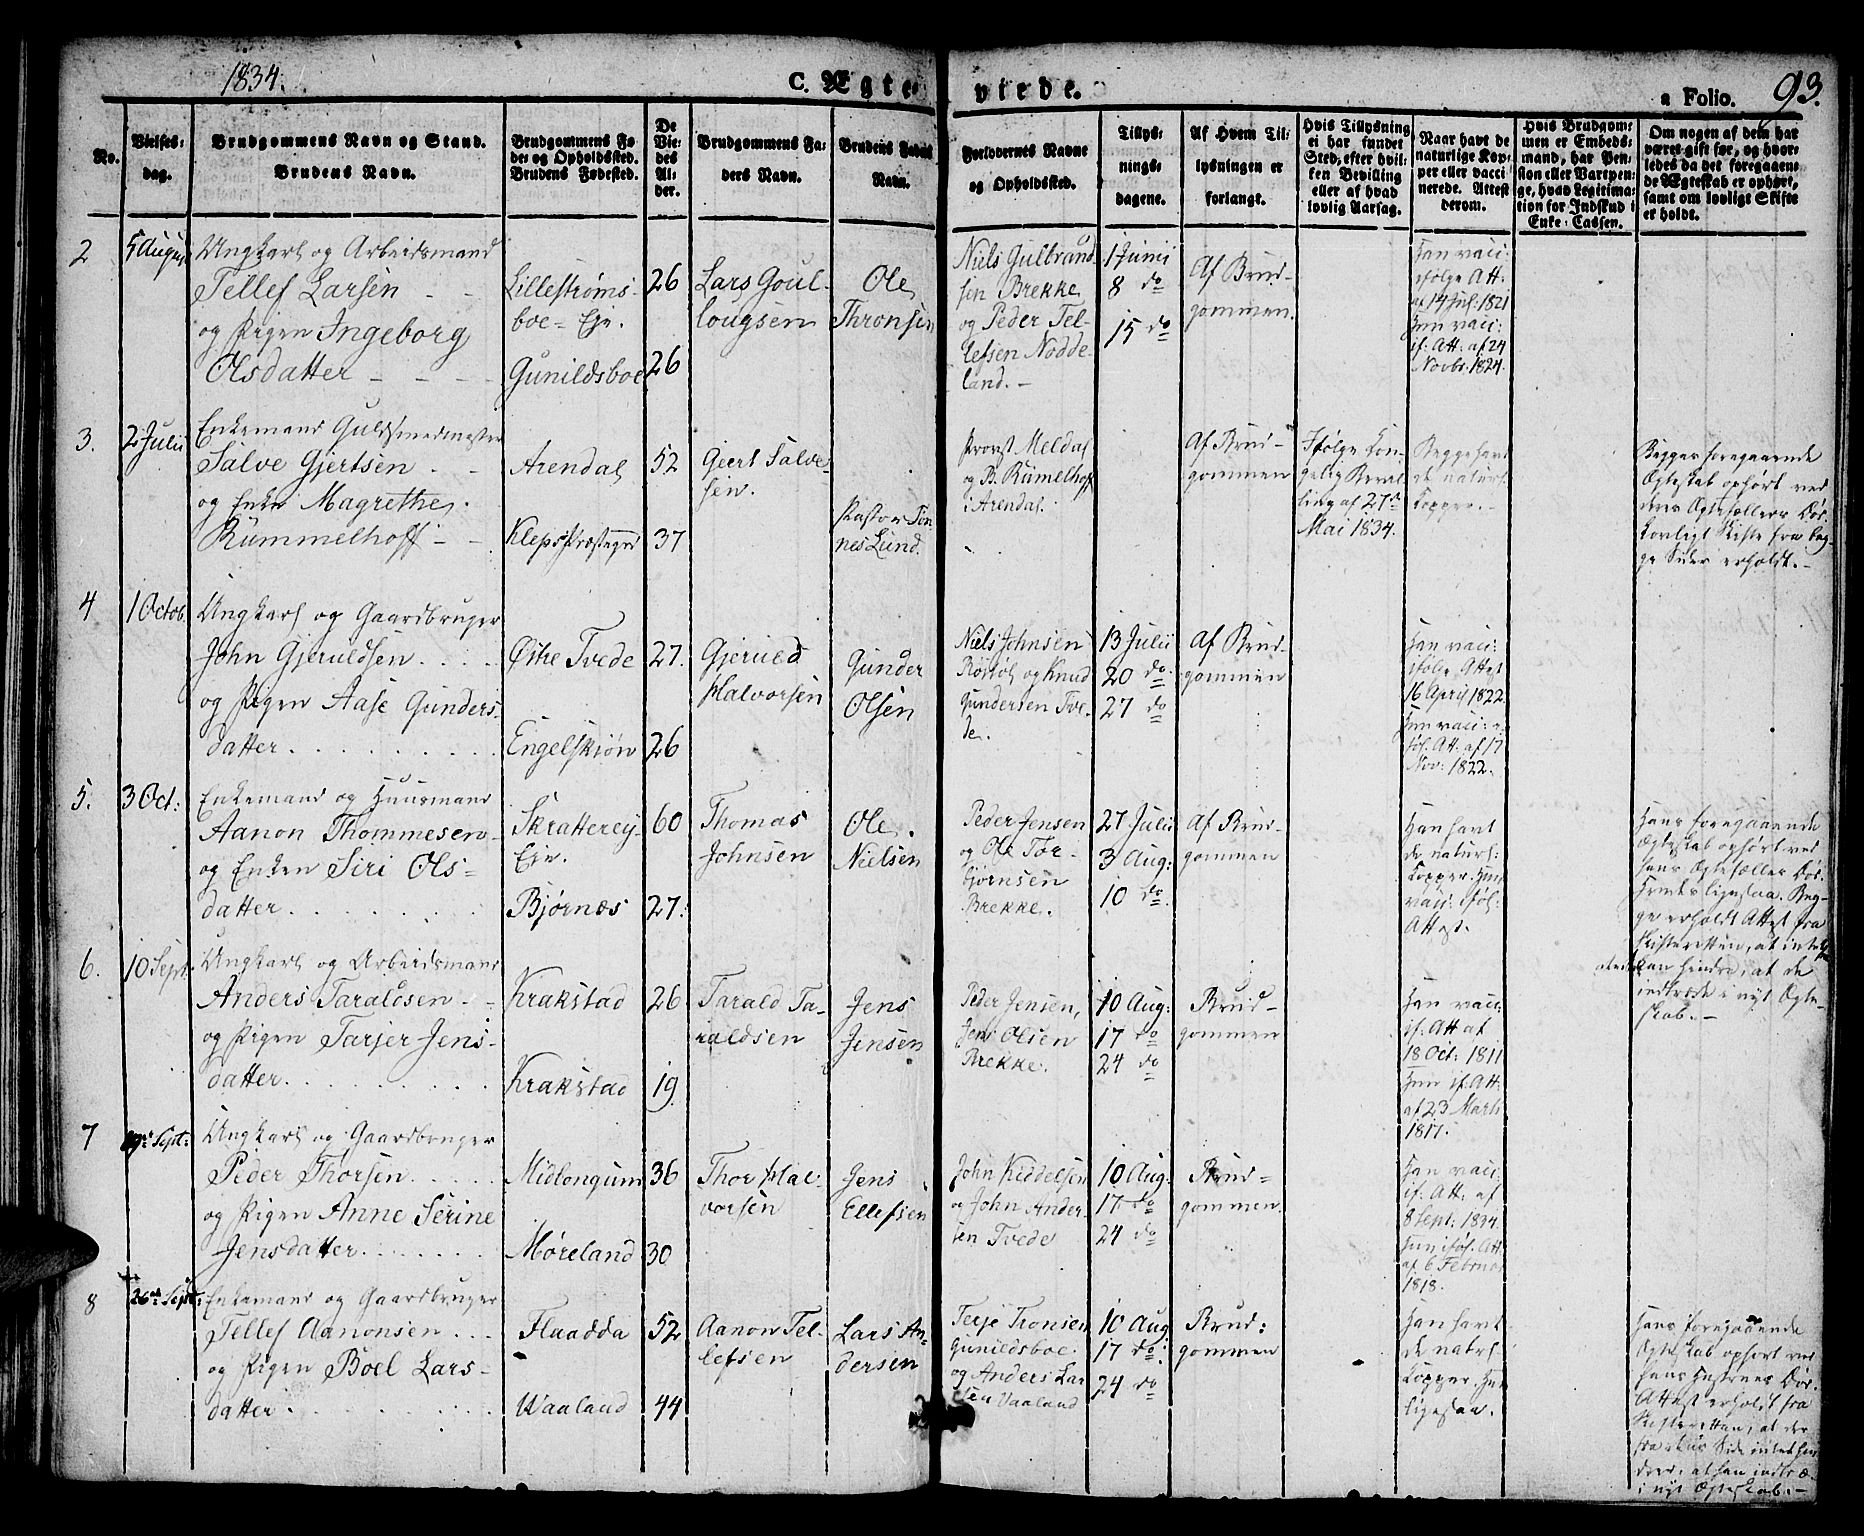 1834.
C. Ægte-
viede.
a Folio. 93.
No.
Vielses-
dag.
Brudgommens Navn og Stand.
Brudens Navn.
Brudgommens Fø-
de- og Opholdssted.
Brudens Fødested.
De
Vie-
des
Al-
der.
Brudgommens Fa-
ders Navn.
Brudens Faders
Navn.
Forlovernes Navne
og Opholdssted.
Tillys-
nings-
dagene.
Af Hvem Til-
lysningen er
forlangt.
Hvis Tillysning
ei har fundet
Sted, efter hvil-
ken Bevilling
eller af hvad
lovlig Aarsag.
Naar havt de
naturlige Kop-
per eller vacci-
nerede. Attest
derom.
Hvis Brudgom-
men er Embeds-
mand, har Pen-
sion eller Vartpen-
ge, hvad Legitima-
tion for Indskud i
Enke-Cassen.
Om nogen af dem har
været gift før, og hvor-
ledes da det foregaaen-
de Ægteskab er ophørt,
samt om lovligt Skifte
er holdt.
2
5 August
Ungkarl og Arbeidsmand
Tellef Larsen
og Pigen Ingeborg
Olsdatter
Lillestrøms-
boe-Eje.
Gunildsboe
26
26
Lars Goul-
lougsen
Ole
Thronsen
Niels Gulbrand-
sen Brekke
og Peder Tel-
lefsen Nodde-
land.
1 Junii
8 do
15 do
Af Brud-
gommen.
Han vacc:
ifølge Att:
af 14 Jul: 1821
Hun vacc:
if: Att: af 24
Novbr. 1824.
3.
2 Julii
Enkemand Guldsmedmester
Salve Gjertsen
og Enke Magrethe
Rümmelhoff
Arendal
Klepspræstegjd
52
37
Geert Salve-
sen.
Pastor Ton-
nes Lund.
Provst Meldal
og B. Rümelhoff
i Arendal.
Af Brud-
gommen
Ifølge Kon-
gelig Bevil-
ling af 27de
Mai 1834.
Begge havt
de naturl:
Kopper.
Begges foregaaende
Ægteskab ophørt ved
deres Ægtefællers Død.
Lovligt Skifte fra beg-
ge Sider erholdt.
4
1 Octob.
Ungkarl og Gaardbruger
John Gjeruldsen
og Pigen Aase Gunders-
datter
Østre Tvede
Engelskiøn
27.
26
Gjerued
Halvorsen
Gunder
Olsen
Niels Johnsen
Røstøl og Knud
Gundersen Tve-
de.
13 Julii
20 do
27 do
Af Brud-
gommen
Han vacc:
ifølge Attest
16 April 1822.
Hun vacc: i-
føl. Att. af 17
Nov: 1822.
5.
3 Oct:
Enkemand og Huusmand
Aanon Thommesen
og Enken Siri Ols-
datter
Skratterey-
Eje.
Bjørnæs
60
27.
Thomas
Johnsen
Ole
Nielsen
Peder Jensen
og Ole Tor-
bjørnsen
Brekke.
27 Julii
3 Aug:
10 do
Af Brud-
gommen
Han havt
de naturl:
Kopper. Hun
vacc: iføl:
Attest.
Hans foregaaende
Ægteskab ophørt ved
hans Ægtefælles Død.
Hendes ligesaa. Beg-
ge erholdt Attest fra
Skifteretten, at intet
kan hindre, at de
indtræde i nyt Ægte-
skab.
6.
10 Sept.
Ungkarl og Arbeidsmand
Anders Taraldsen
og Pigen Tarjer Jens-
datter
Krakstad
Krakstad
26
19.
Tarald Ta-
raldsen
Jens
Jensen
Peder Jensen,
Jens Olsen
Brekke.
10 Aug:
17 do
24 do
Brud-
gommen
Han vacc:
if: Att af
18 Oct: 1811
Hun if: Att:
af 23 Marts
1817.
7
Sept:
Ungkarl og Gaardbruger
Peder Thorsen
og Pigen Anne Serine
Jensdatter
Midlongum
Møreland
36
30
Thor Hal-
vorsen
Jens
Ellefsen
John Kiddelsen
og John Ander-
sen Tvede
10 Aug.
17 do
24 do
Brud-
gommen.
Han vacc:
if: Att: af
8 Sept: 1834.
Hun iføl. Att.
af 6 Februar
1818.
8
26de Sept:
Enkemand og Gaardbruger
Tellef Aanonsen
og Pigen Boel Lars-
datter
Flaadda
Waaland
52
44
Aanon Tel-
lefsen
Lars An-
dersen
Terje Tronsen
Gunildsboe
og Anders Lar-
sen Vaaland
10 Aug
17 do
24 do
Brud:
gommen
Han havt
de naturl:
Kopper. Hun
ligesaa.
Hans foregaaende
Ægteskab ophørt ved
hans Hustrues Død.
Attest erholdt fra
Skifteretten, at der
fra Side intet hin-
drer, at han indtræ-
i nyt Ægteskab.